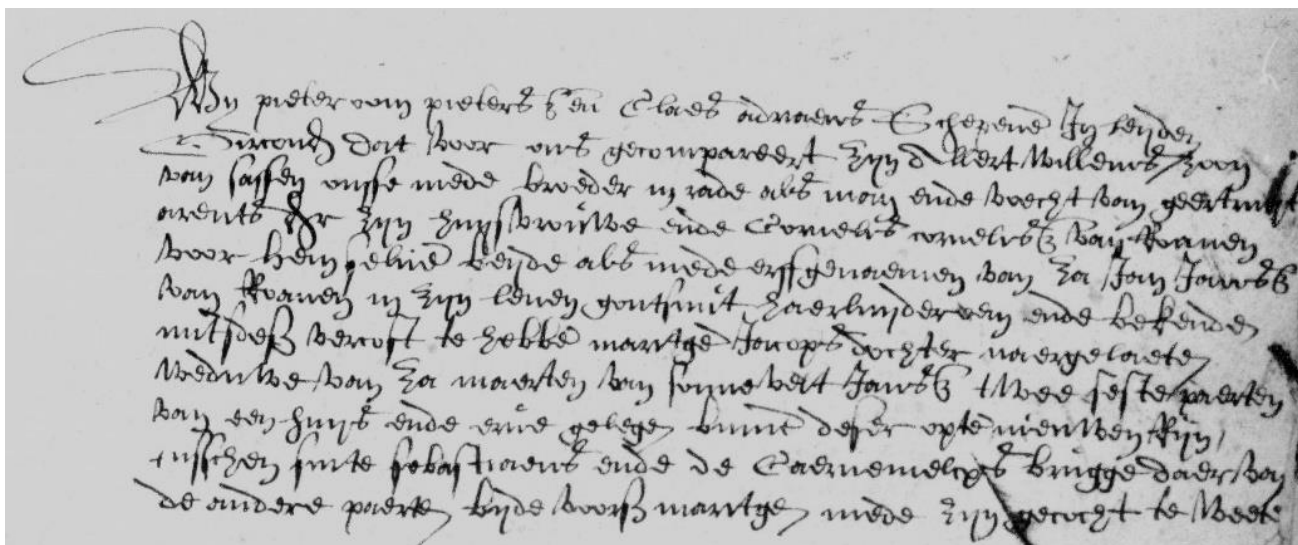 Wy pieter vom pieters z en Claes adriaens Schepene In leyden
oirconden dat voor ons gecompareert zyn d Evert Willems zoon
van sassen onsse mede broeder in rade als man ende voecht van geertruyt
arents dr zyn huysvrouwe ende Cornelis cornelisz van Roanen
voor hem selve beyde als mede erffgenaemen van za Jan Jansz
van Roanen in zyn leven goutsmit haerluyder oem ende bekende
mitsdesen vercoft te hebbe maritge Jacops dochter naergelaete
weduwe van za maerten van sonnevelt Jansz twee seste paerten
van een huys ende erve gelegen binne deser opte nieuwen Ryn
tusschen sinte sebastiaens ende de Caernemelcxs brugge daer van
de andere paerten byde voorsz maritgen mede zyn gecocht te weete